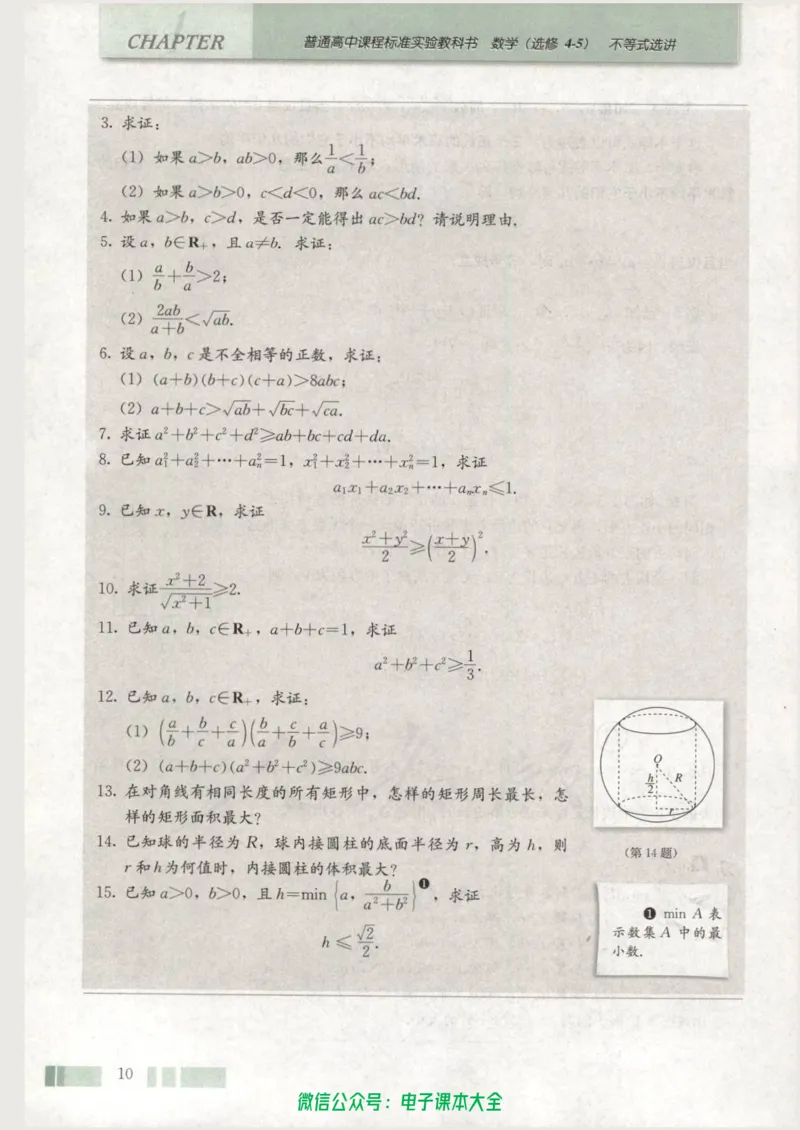 CHAPTER 1
普通高中课程标准实验教科书 数学（选修 4-5） 不等式选讲
3. 求证：
（1）如果 a>b，ab>0，那么 1/a<1/b；
（2）如果 a>b>0，c<d<0，那么 ac<bd.
4. 如果 a>b，c>d，是否一定能得出 ac>bd？请说明理由.
5. 设 a，b∈R₊，且 a≠b. 求证：
（1）a/b+b/a>2；
（2）2ab/(a+b)<√(ab).
6. 设 a，b，c 是不全相等的正数，求证：
（1）(a+b)(b+c)(c+a)>8abc；
（2）a+b+c>√(ab)+√(bc)+√(ca).
7. 求证 a²+b²+c²+d²≥ab+bc+cd+da.
8. 已知 a₁²+a₂²+⋯+aₙ²=1，x₁²+x₂²+⋯+xₙ²=1，求证
a₁x₁+a₂x₂+⋯+aₙxₙ≤1.
9. 已知 x，y∈R，求证
(x²+y²)/2≥((x+y)/2)².
10. 求证 (x²+2)/√(x²+1)≥2.
11. 已知 a，b，c∈R₊，a+b+c=1，求证
a²+b²+c²≥1/3.
12. 已知 a，b，c∈R₊，求证：
（1）(a/b+b/c+c/a)(b/a+c/b+a/c)≥9；
（2）(a+b+c)(a²+b²+c²)≥9abc.
13. 在对角线有相同长度的所有矩形中，怎样的矩形周长最长，怎
样的矩形面积最大？
14. 已知球的半径为 R，球内接圆柱的底面半径为 r，高为 h，则
r 和 h 为何值时，内接圆柱的体积最大？
15. 已知 a>0，b>0，且 h=min{a，b/(a²+b²)}❶，求证
h≤√2/2.
O
h/2
R
r
（第 14 题）
❶ min A 表
示数集 A 中的最
小数.
10
微信公众号：电子课本大全